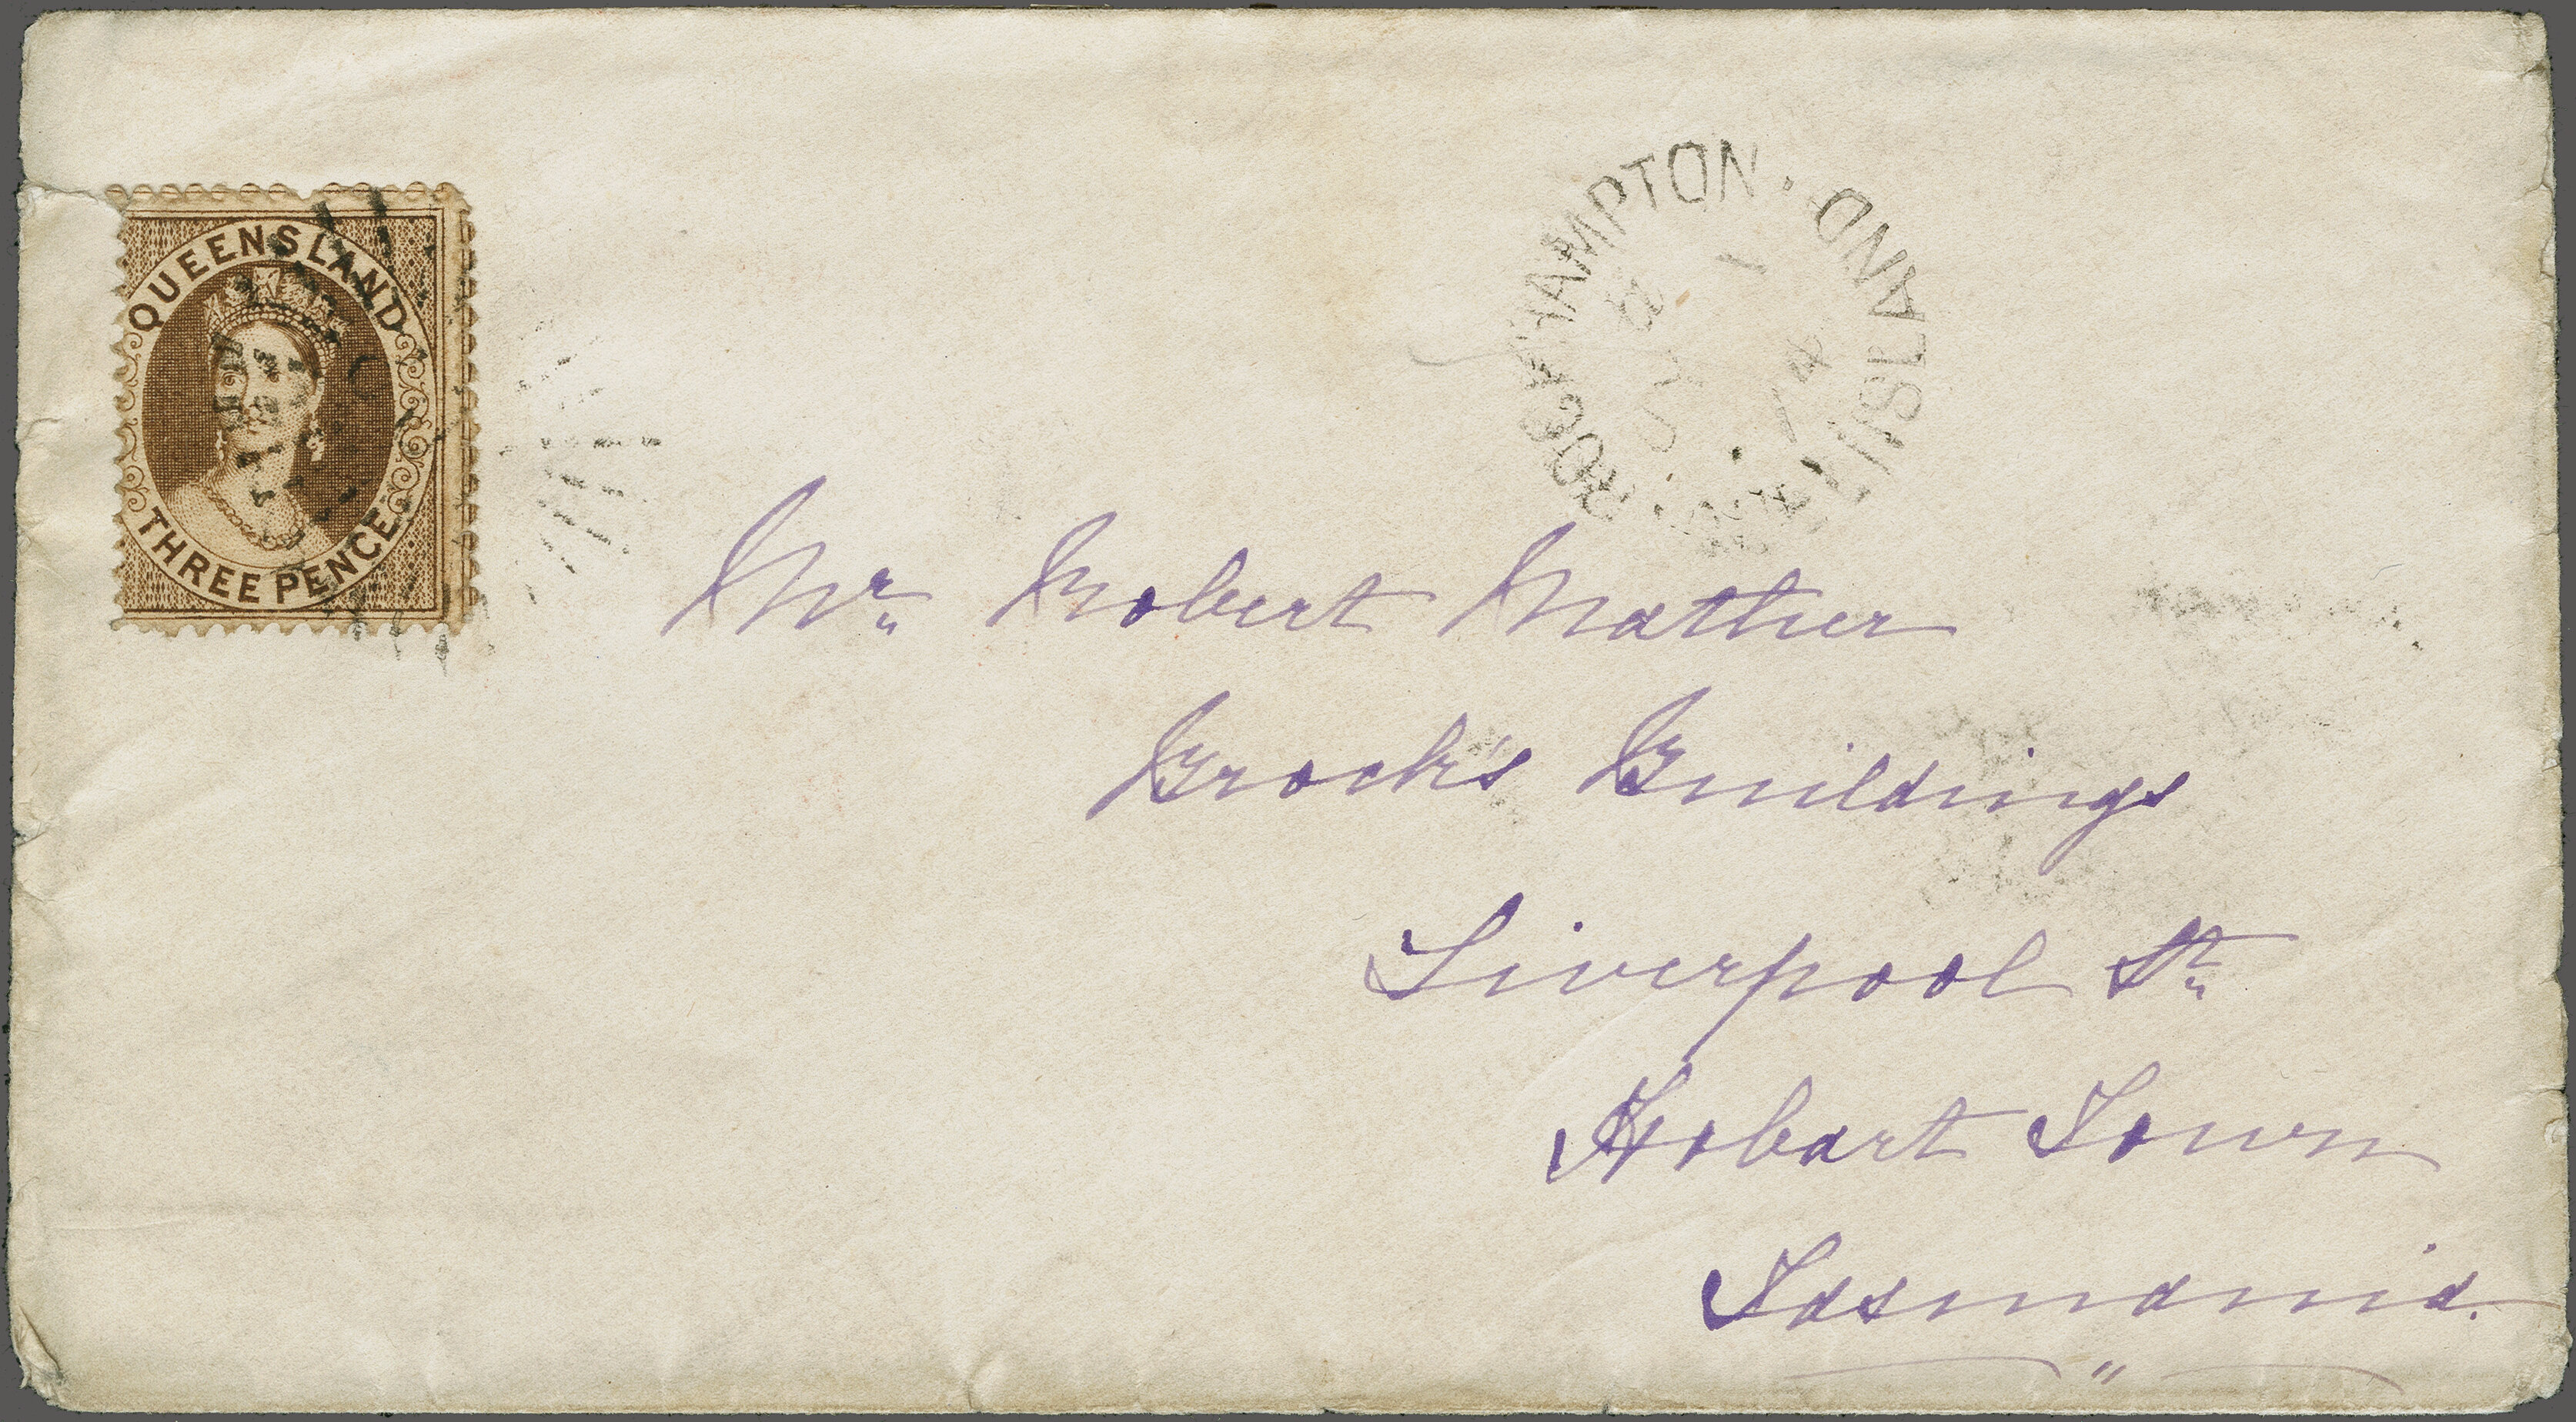 QUEENSLAND
THREE PENCE
ROCKHAMPTON · QUEENSLAND
JY
Mr Robert Mather
Brock's Buildings
Liverpool St
Hobart Town
Tasmania.